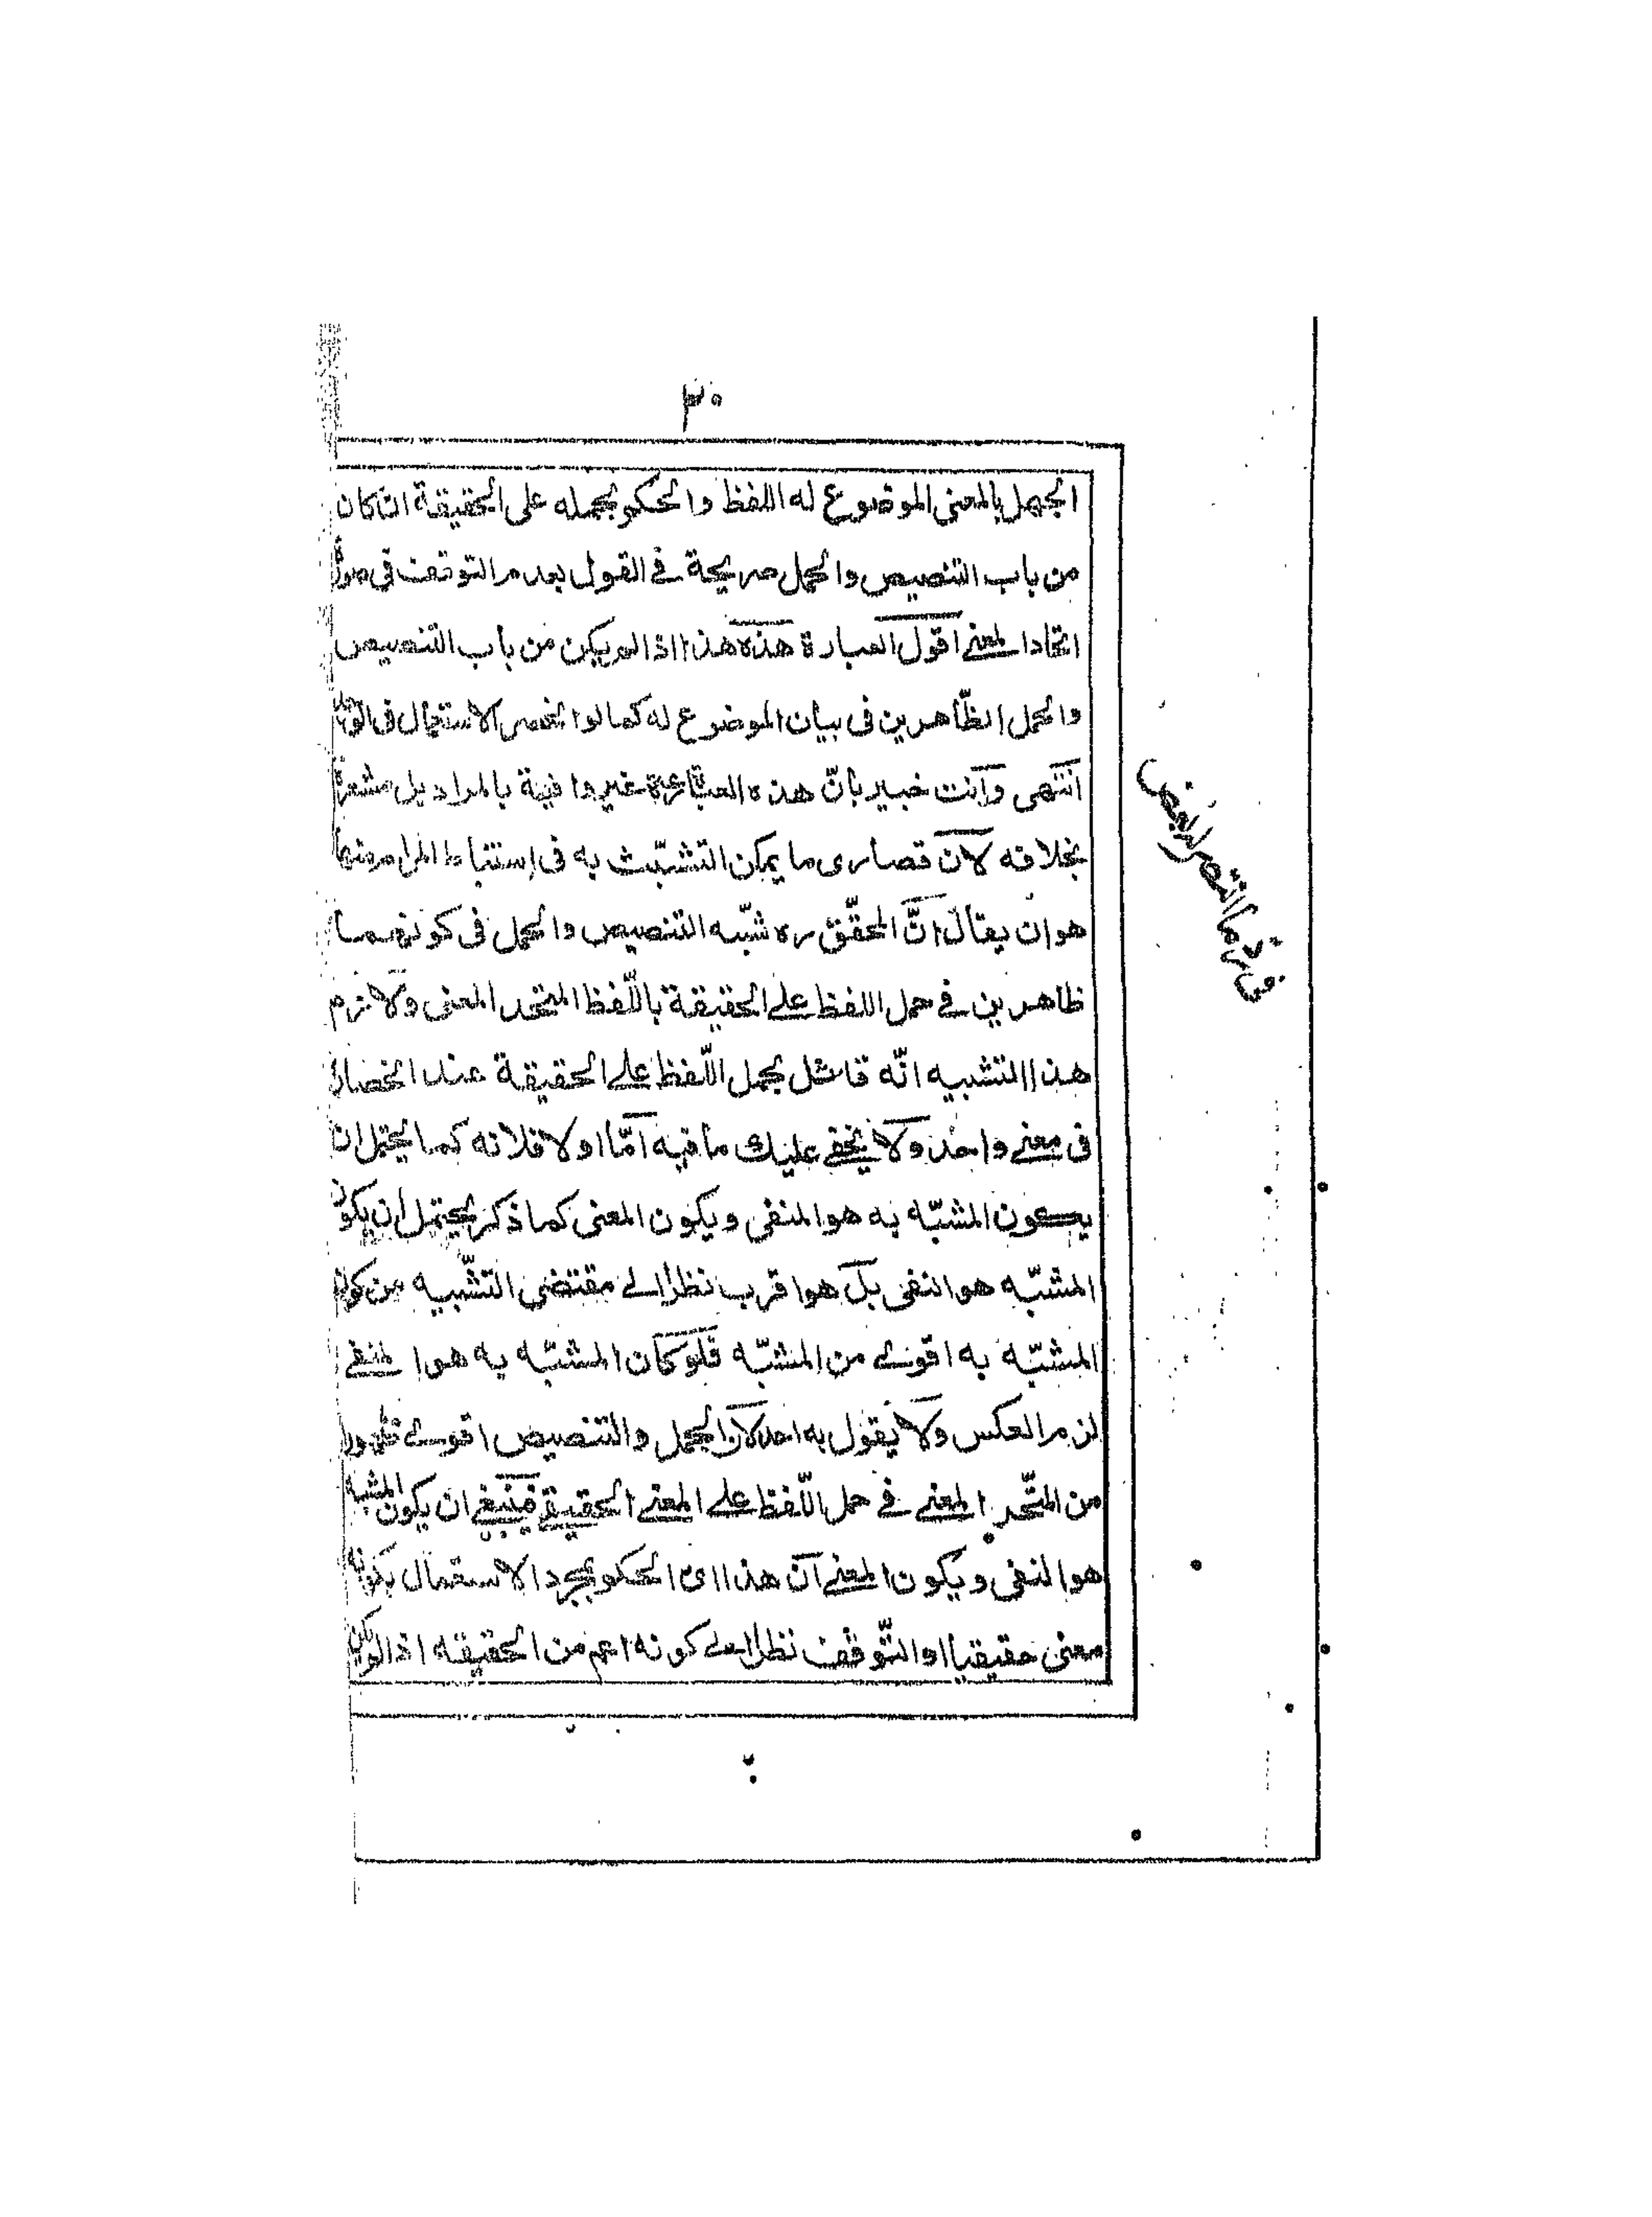 ٣٠
الجهل بالمعنى الموضوع له اللفظ والحكم بحمله على الحقيقة ان كان
من باب التنصيص والحمل صريحة في القول بعدم التوقف في صورة
اتحاد المعنى اقول العبارة هذه هذا اذا لم يكن من باب التنصيص
والحمل الظّاهرين فى بيان الموضوع له كما لو انحصر الاستعمال فى الواحد
انتهى وانت خبير بانّ هذه العبارة غير وافية بالمراد بل مشعرة
بخلافه لان قصارى ما يمكن التشبّث به فى استنباط المرام منها
هو ان يقال انّ المحقّق ره شبّه التنصيص والحمل فى كونهما
ظاهرين فى حمل اللفظ على الحقيقة باللّفظ المتحد المعنى ولازم
هذا التشبيه انّه قائل بحمل اللّفظ على الحقيقة عند انحصاره
فى معنى واحد ولا يخفى عليك ما فيه امّا اولا فلانه كما يحتمل ان
يكون المشبّه به هو المنفى ويكون المعنى كما ذكر يحتمل ان يكون
المشبّه هو النفى بل هو اقرب نظرا الى مقتضى التشّبيه من كون
المشبّه به اقوى من المشبّه فلو كان المشبّه به هو المنفى
لزم العكس ولا يقول به احد لان الحمل والتنصيص اقوى ظهورا
من المتّحد المعنى فى حمل اللّفظ على المعنى الحقيقى فينبغى ان يكون المشبه
هو النفى ويكون المعنى ان هذا اى الحكم بمجرد الاستعمال بكونه
معنى حقيقيا او التّوقّف نظرا الى كونه اعم من الحقيقه اذا لم يكن